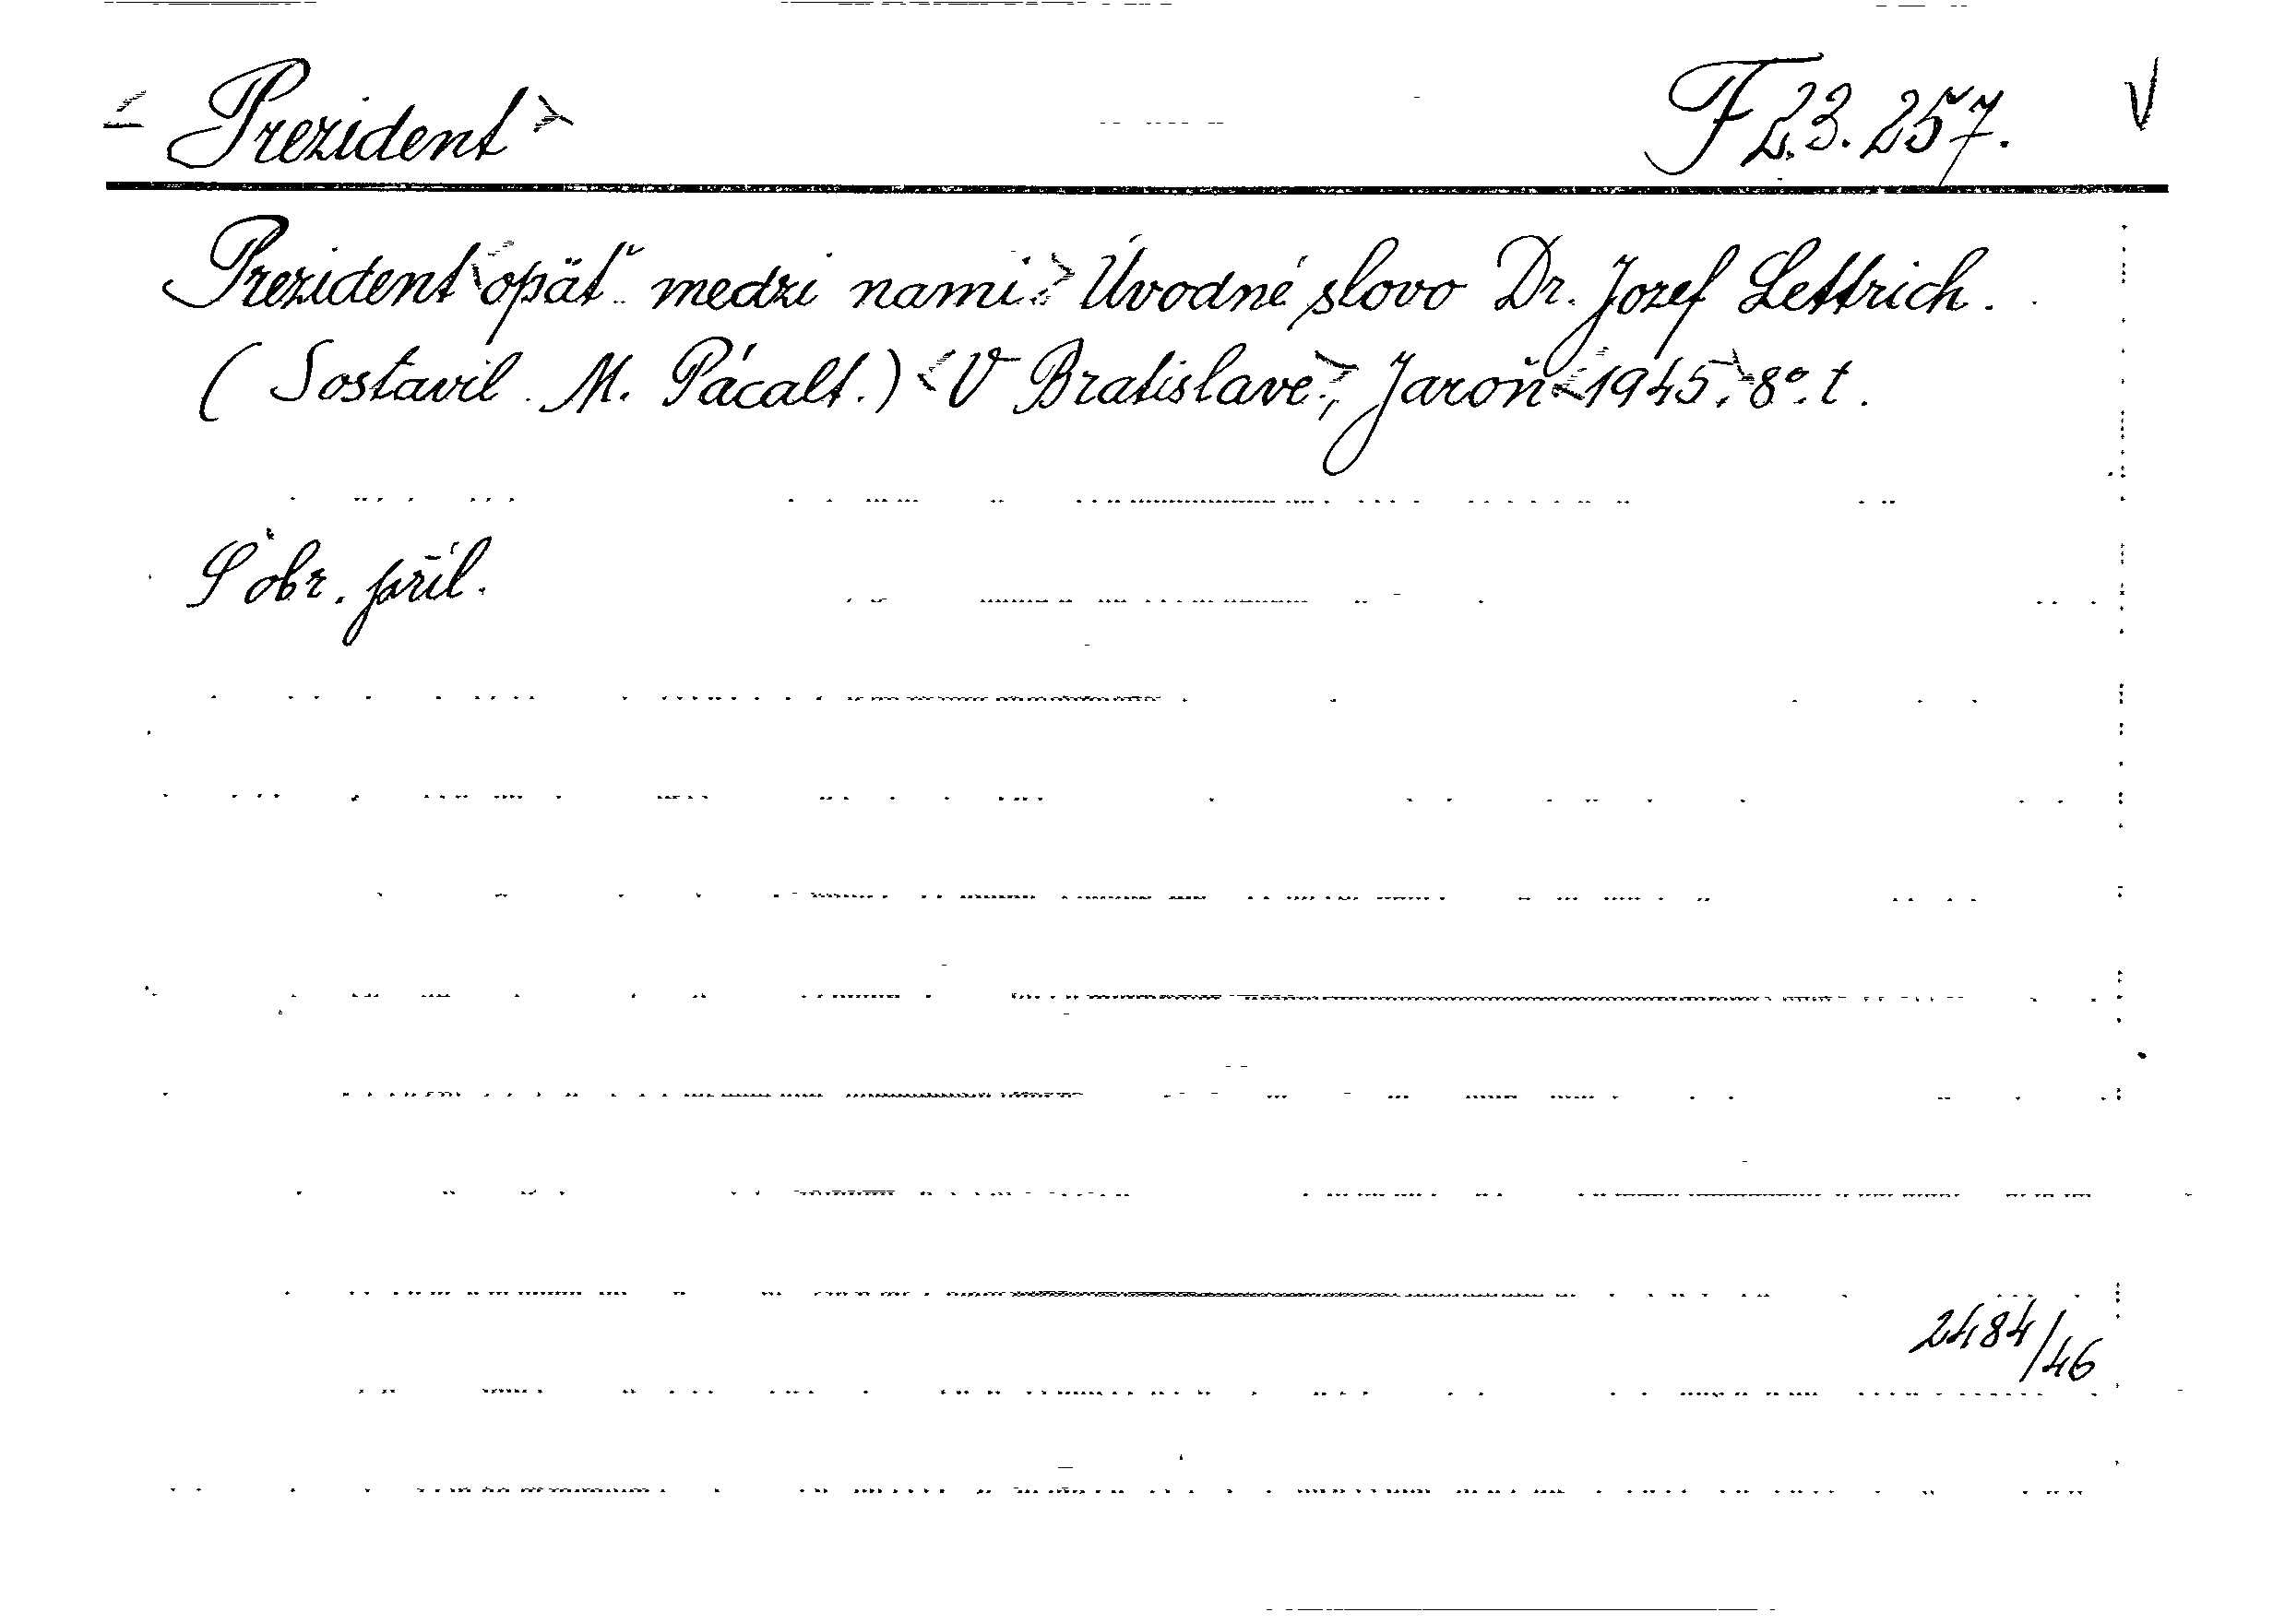 <Prezident> F 23.257. V
Prezident <opäť medzi nami.> Úvodné slovo Dr. Jozef Lettrich.
(Sostavil M. Pácalt.) <V Bratislave>, Jaroň <1945.> 8°. t.
S obr. příl.
2484/46